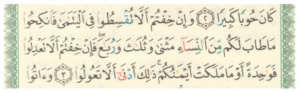 كَانَ حُوبًا كَبِيرًا ٢ وَإِنْ خِفْتُمْ أَلَّا تُقْسِطُوا۟ فِى ٱلْيَتَٰمَىٰ فَٱنكِحُوا۟
مَا طَابَ لَكُم مِّنَ ٱلنِّسَآءِ مَثْنَىٰ وَثُلَٰثَ وَرُبَٰعَ ۖ فَإِنْ خِفْتُمْ أَلَّا تَعْدِلُوا۟
فَوَٰحِدَةً أَوْ مَا مَلَكَتْ أَيْمَٰنُكُمْ ۚ ذَٰلِكَ أَدْنَىٰٓ أَلَّا تَعُولُوا۟ ٣ وَءَاتُوا۟